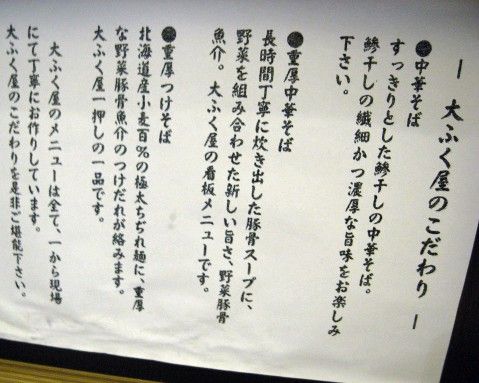 ― 大ふく屋のこだわり ―
●中華そば
すっきりとした鯵干しの中華そば。
鯵干しの繊細かつ濃厚な旨味をお楽しみ
下さい。
●重厚中華そば
長時間丁寧に炊き出した豚骨スープに、
野菜を組み合わせた新しい旨さ、野菜豚骨
魚介。 大ふく屋の看板メニューです。
●重厚つけそば
北海道産小麦百%の極太ちぢれ麺に、重厚
な野菜豚骨魚介のつけだれが絡みます。
大ふく屋一押しの一品です。
大ふく屋のメニューは全て、一から現場
にて丁寧にお作りしています。
大ふく屋のこだわりを是非ご堪能下さい。